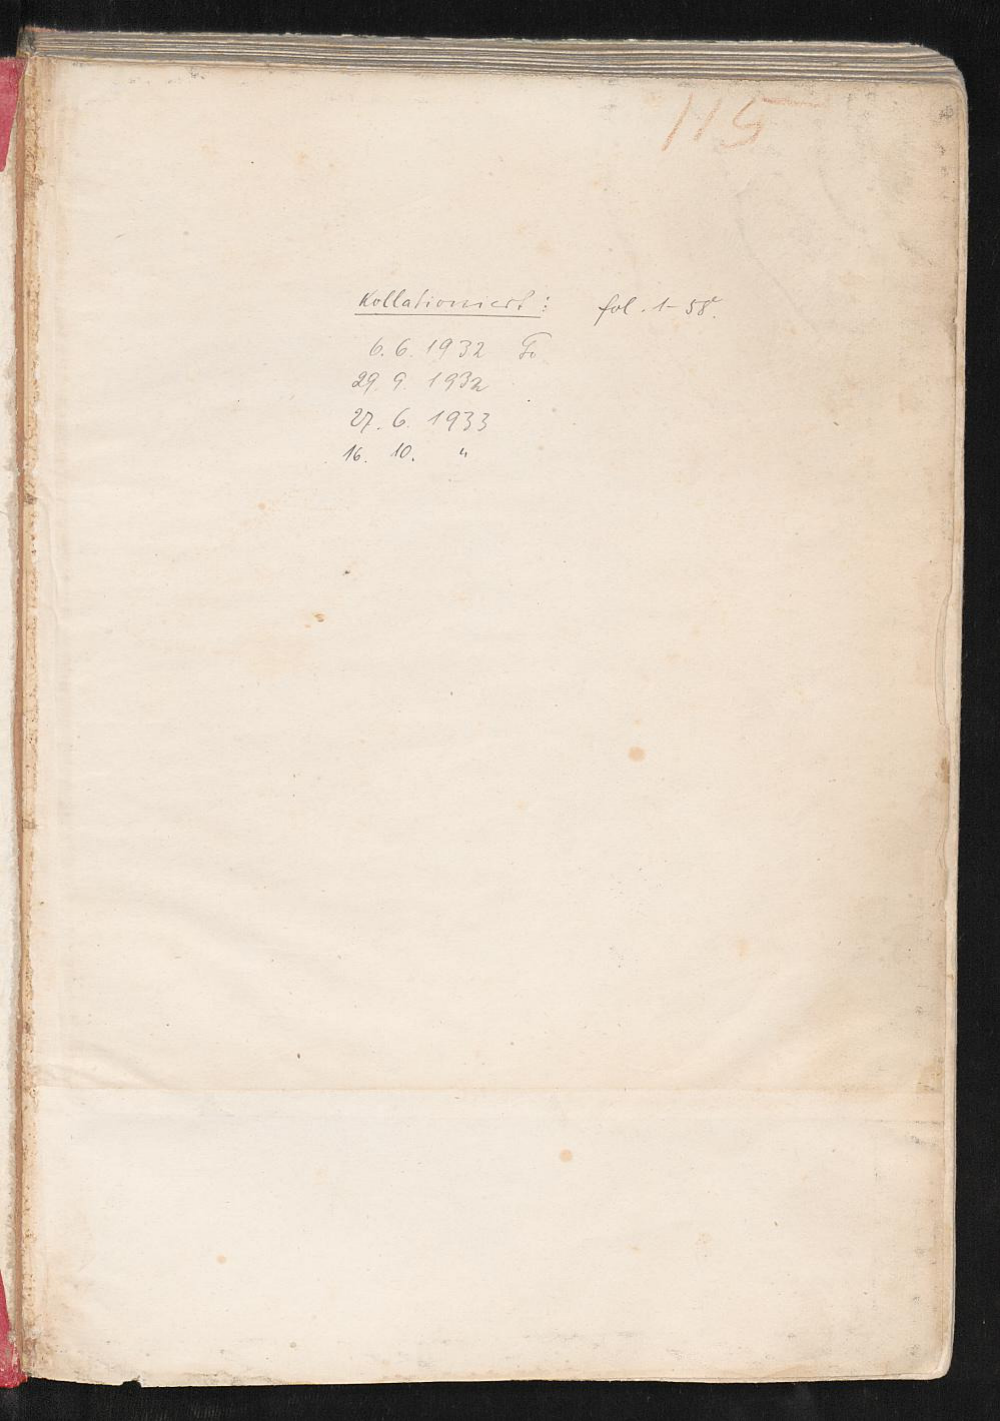 115
Kollationiert: fol. 1-58.
6. 6. 1932
29. 9. 1932
27. 6. 1933
16. 10. "